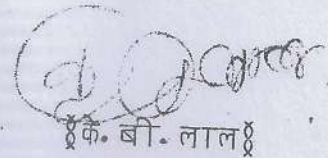 (के. बी. लाल)